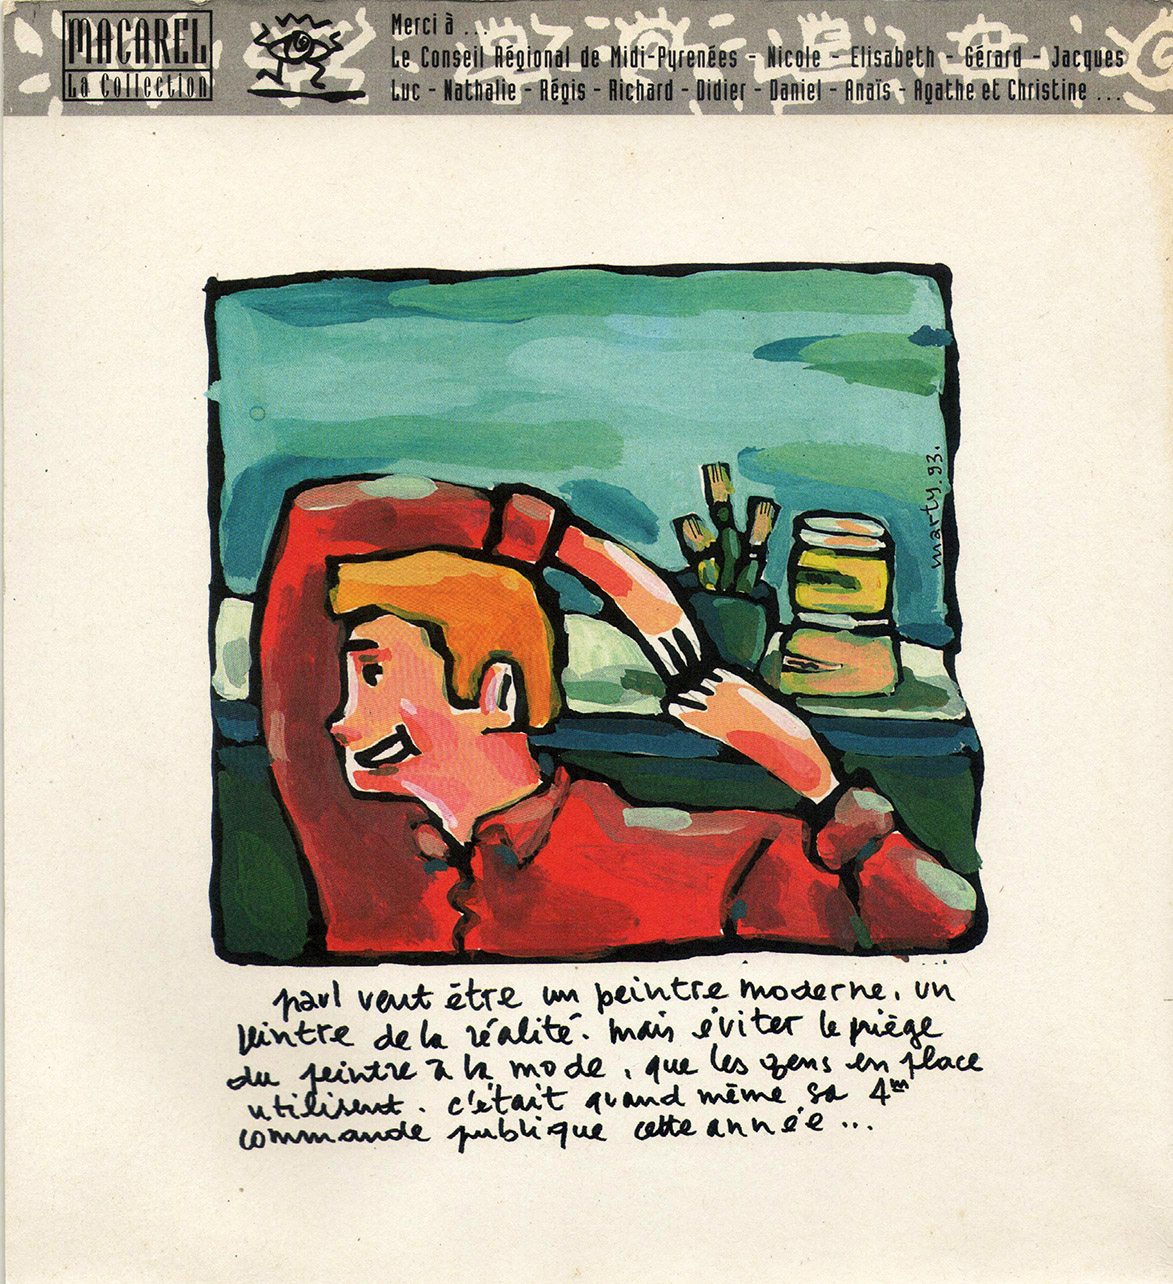 MACAREL
La Collection
Merci à ...
Le Conseil Régional de Midi-Pyrenées - Nicole - Elisabeth - Gérard - Jacques
Luc - Nathalie - Régis - Richard - Didier - Daniel - Anaïs - Agathe et Christine ...
marty.93.
paul veut être un peintre moderne, un
peintre de la réalité. mais éviter le piège
du peintre à la mode, que les gens en place
utilisent. c'était quand même sa 4em
commande publique cette année...